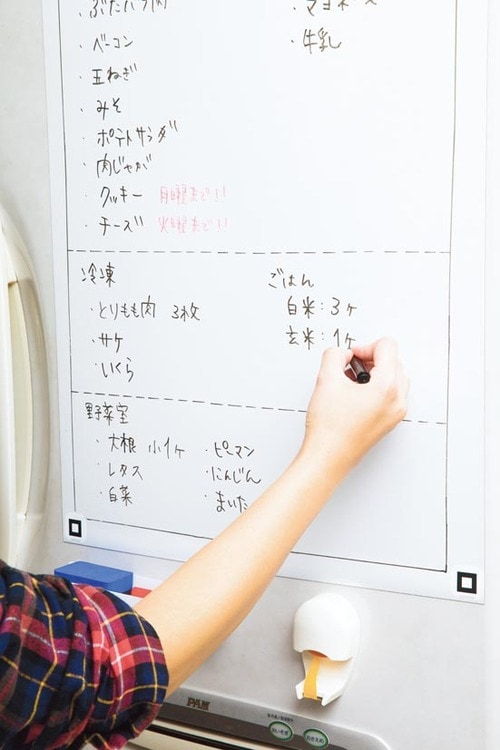 ・ぶたバラ肉
・ベーコン
・玉ねぎ
・みそ
・ポテトサラダ
・肉じゃが
・クッキー 月曜まで!!
・チーズ 火曜まで!!
・マヨネーズ
・牛乳
冷凍
・とりもも肉 3枚
・サケ
・いくら
ごはん
白米:3ヶ
玄米:1ヶ
野菜室
・大根 小1ヶ
・レタス
・白菜
・ピーマン
・にんじん
・まいた